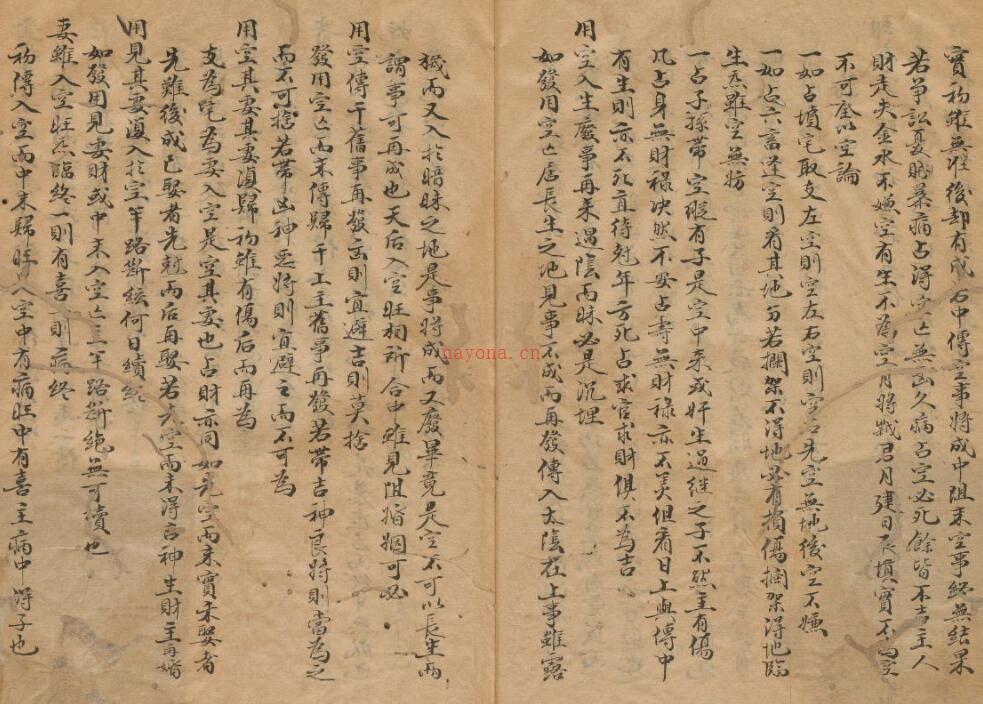 實初雖無准後却有成若中傳空事將成中阻末空事終無結果
若爭訟憂賊暴病占得空亡無凶久病占空必死餘皆不吉主人
財走失金水不嫌空有生不為空月將歲君月建日辰填實不為空
不可全以空論
一如占墳宅取支左空則空左右空則空右先空無地後空不嫌
一如占六畜逢空則看其地分若攔架不得地必有損傷攔架得地臨
生炁雖空無妨
一占子孫帶空縱有子是空中來或奸生過継之子不然主有傷
凡占身無財禄决然不安占壽無財禄亦不美但看日上與傳中
有生則亦不死直待尅年方死占求官求財俱不為吉
用空入生廢事再來過陰而昧必是沉埋
如發用空亡居長生之地見事不成而再發傳入太陰在上事雖露
機而又入於暗昧之地是事將成而又廢畢竟是空不可以長生而
謂事可再成也天后入空旺相祈合中雖見阻婚姻可必
用空傳干舊事再發凶則宜避吉則莫捨
發用空亡而末傳歸干上主舊事再發若帶吉神良將則當為之
而不可捨若帶凶神惡將則宜避之而不可為
用空其妻其妻復歸初雖有傷后而再為
支為宅為妻入空是空其妻也占財亦同如先空而末實未娶者
先難後成已娶者先尅而后再娶若先空而末得吉神生財主再婚
用見其妻復入於空半路斷絃何日續終
如發用見妻財或中末入空亡三半路斷絶無可續也
妻雖入空旺炁臨終一則有喜一則疏終
初傳入空而中末歸旺入空中有病旺中有喜主病中得子也
nayona.cn